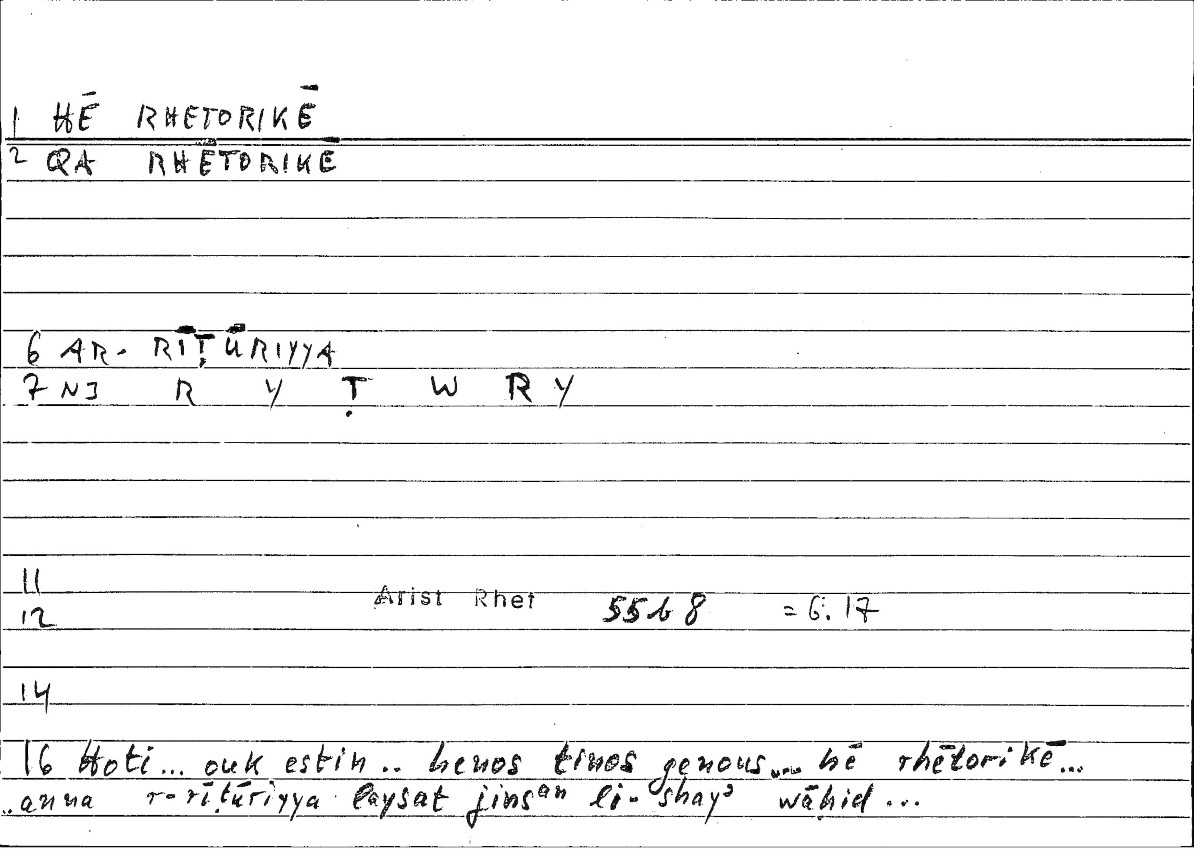 1 HĒ RHETORIKĒ
2 QA RHĒTORIKE
6 AR- RĪṬŪRIYYA
7 NJ R Y Ṭ W R Y
11
12 Arist Rhet 55b8 = 6.17
14
16 Hoti... ouk estin .. henos tinos genous.... hē rhētorikē...
..anna r-rīṭūriyya laysat jinsᵃⁿ li-shayʾ wāḥid ...